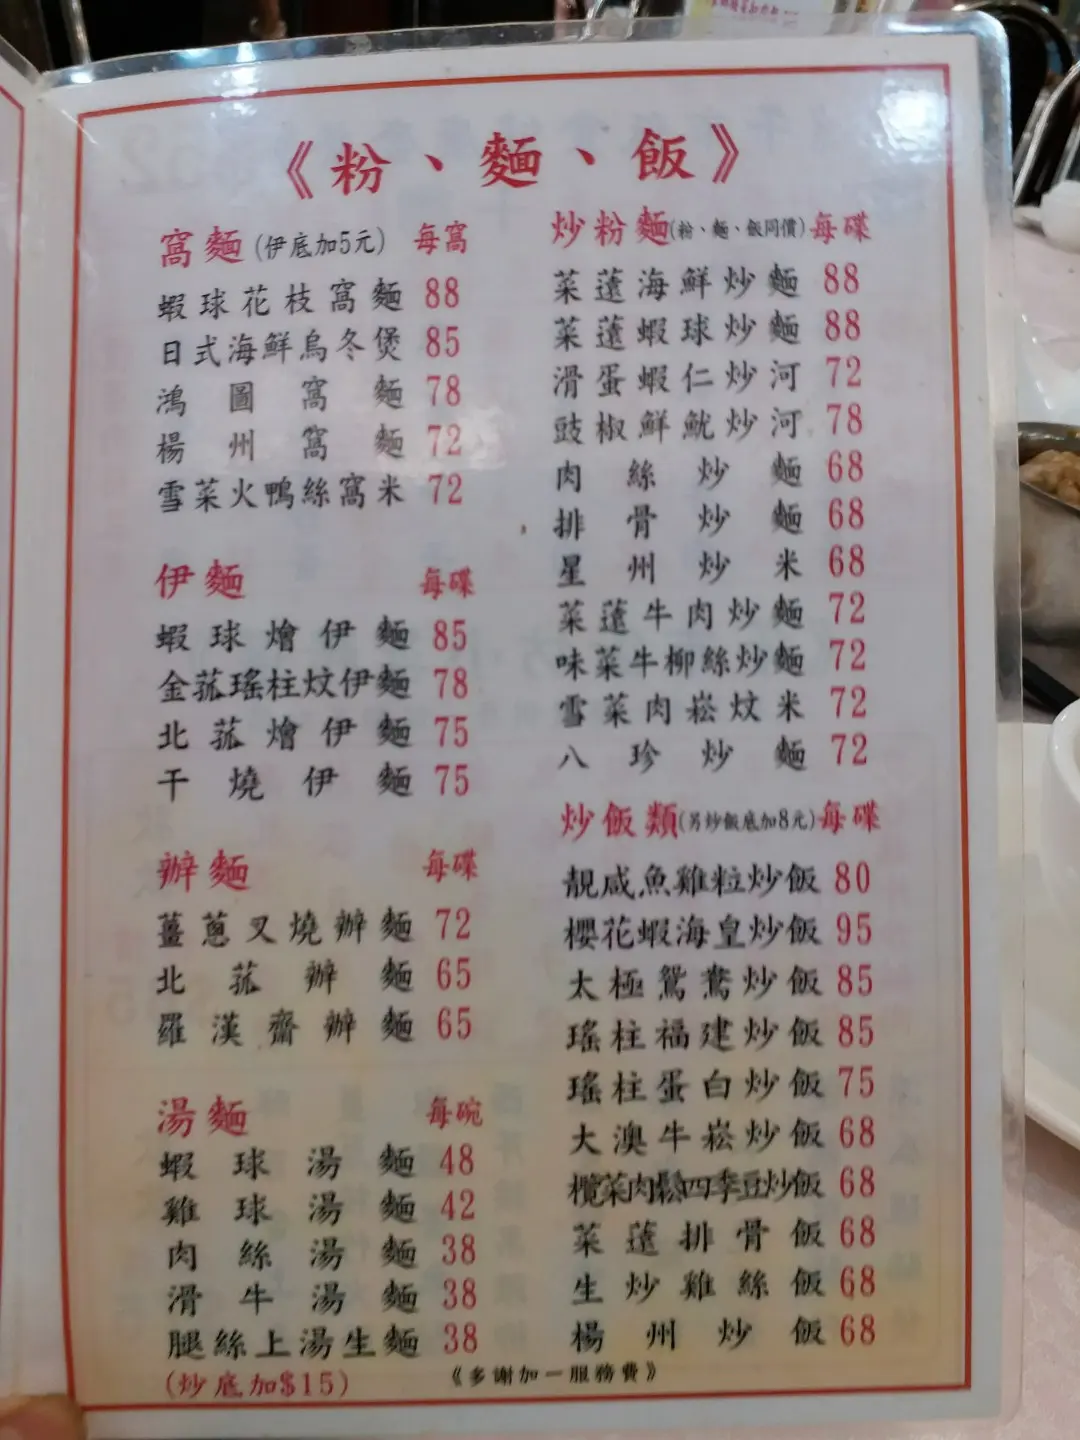 《粉、麵、飯》
窩麵(伊底加5元) 每窩
蝦球花枝窩麵 88
日式海鮮烏冬煲 85
鴻圖窩麵 78
楊州窩麵 72
雪菜火鴨絲窩米 72
伊麵 每碟
蝦球燴伊麵 85
金菰瑤柱炆伊麵 78
北菰燴伊麵 75
干燒伊麵 75
辦麵 每碟
薑蔥叉燒辦麵 72
北菰辦麵 65
羅漢齋辦麵 65
湯麵 每碗
蝦球湯麵 48
雞球湯麵 42
肉絲湯麵 38
滑牛湯麵 38
腿絲上湯生麵 38
(炒底加$15)
炒粉麵(粉、麵、飯同價) 每碟
菜薳海鮮炒麵 88
菜薳蝦球炒麵 88
滑蛋蝦仁炒河 72
豉椒鮮魷炒河 78
肉絲炒麵 68
排骨炒麵 68
星州炒米 68
菜薳牛肉炒麵 72
味菜牛柳絲炒麵 72
雪菜肉崧炆米 72
八珍炒麵 72
炒飯類(另炒飯底加8元) 每碟
靚咸魚雞粒炒飯 80
櫻花蝦海皇炒飯 95
太極鴛鴦炒飯 85
瑤柱福建炒飯 85
瑤柱蛋白炒飯 75
大澳牛崧炒飯 68
欖菜肉鬆四季豆炒飯 68
菜薳排骨飯 68
生炒雞絲飯 68
楊州炒飯 68
《多謝加一服務費》